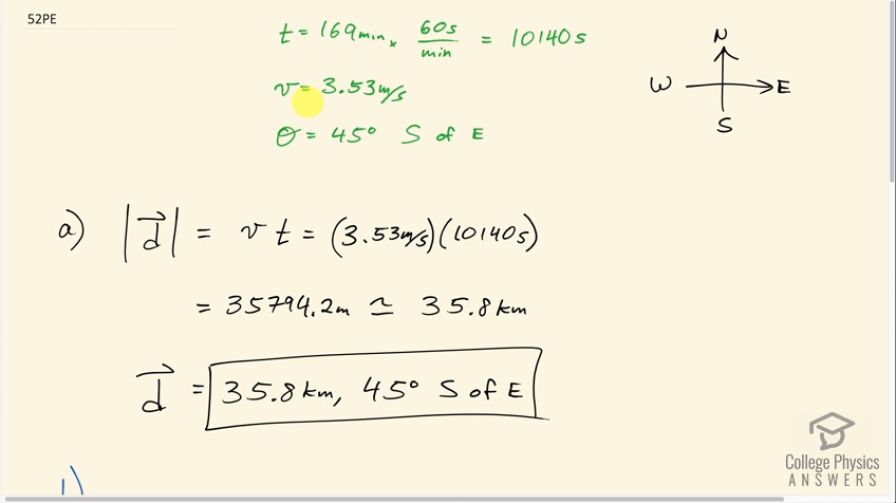 52PE
t = 169 min × 60s/min = 10140 s
v = 3.53 m/s
θ = 45° S of E
N
W E
S
a) |d⃗| = v t = (3.53 m/s)(10140 s)
= 35794.2 m ≃ 35.8 km
d⃗ = 35.8 km, 45° S of E
College Physics
ANSWERS